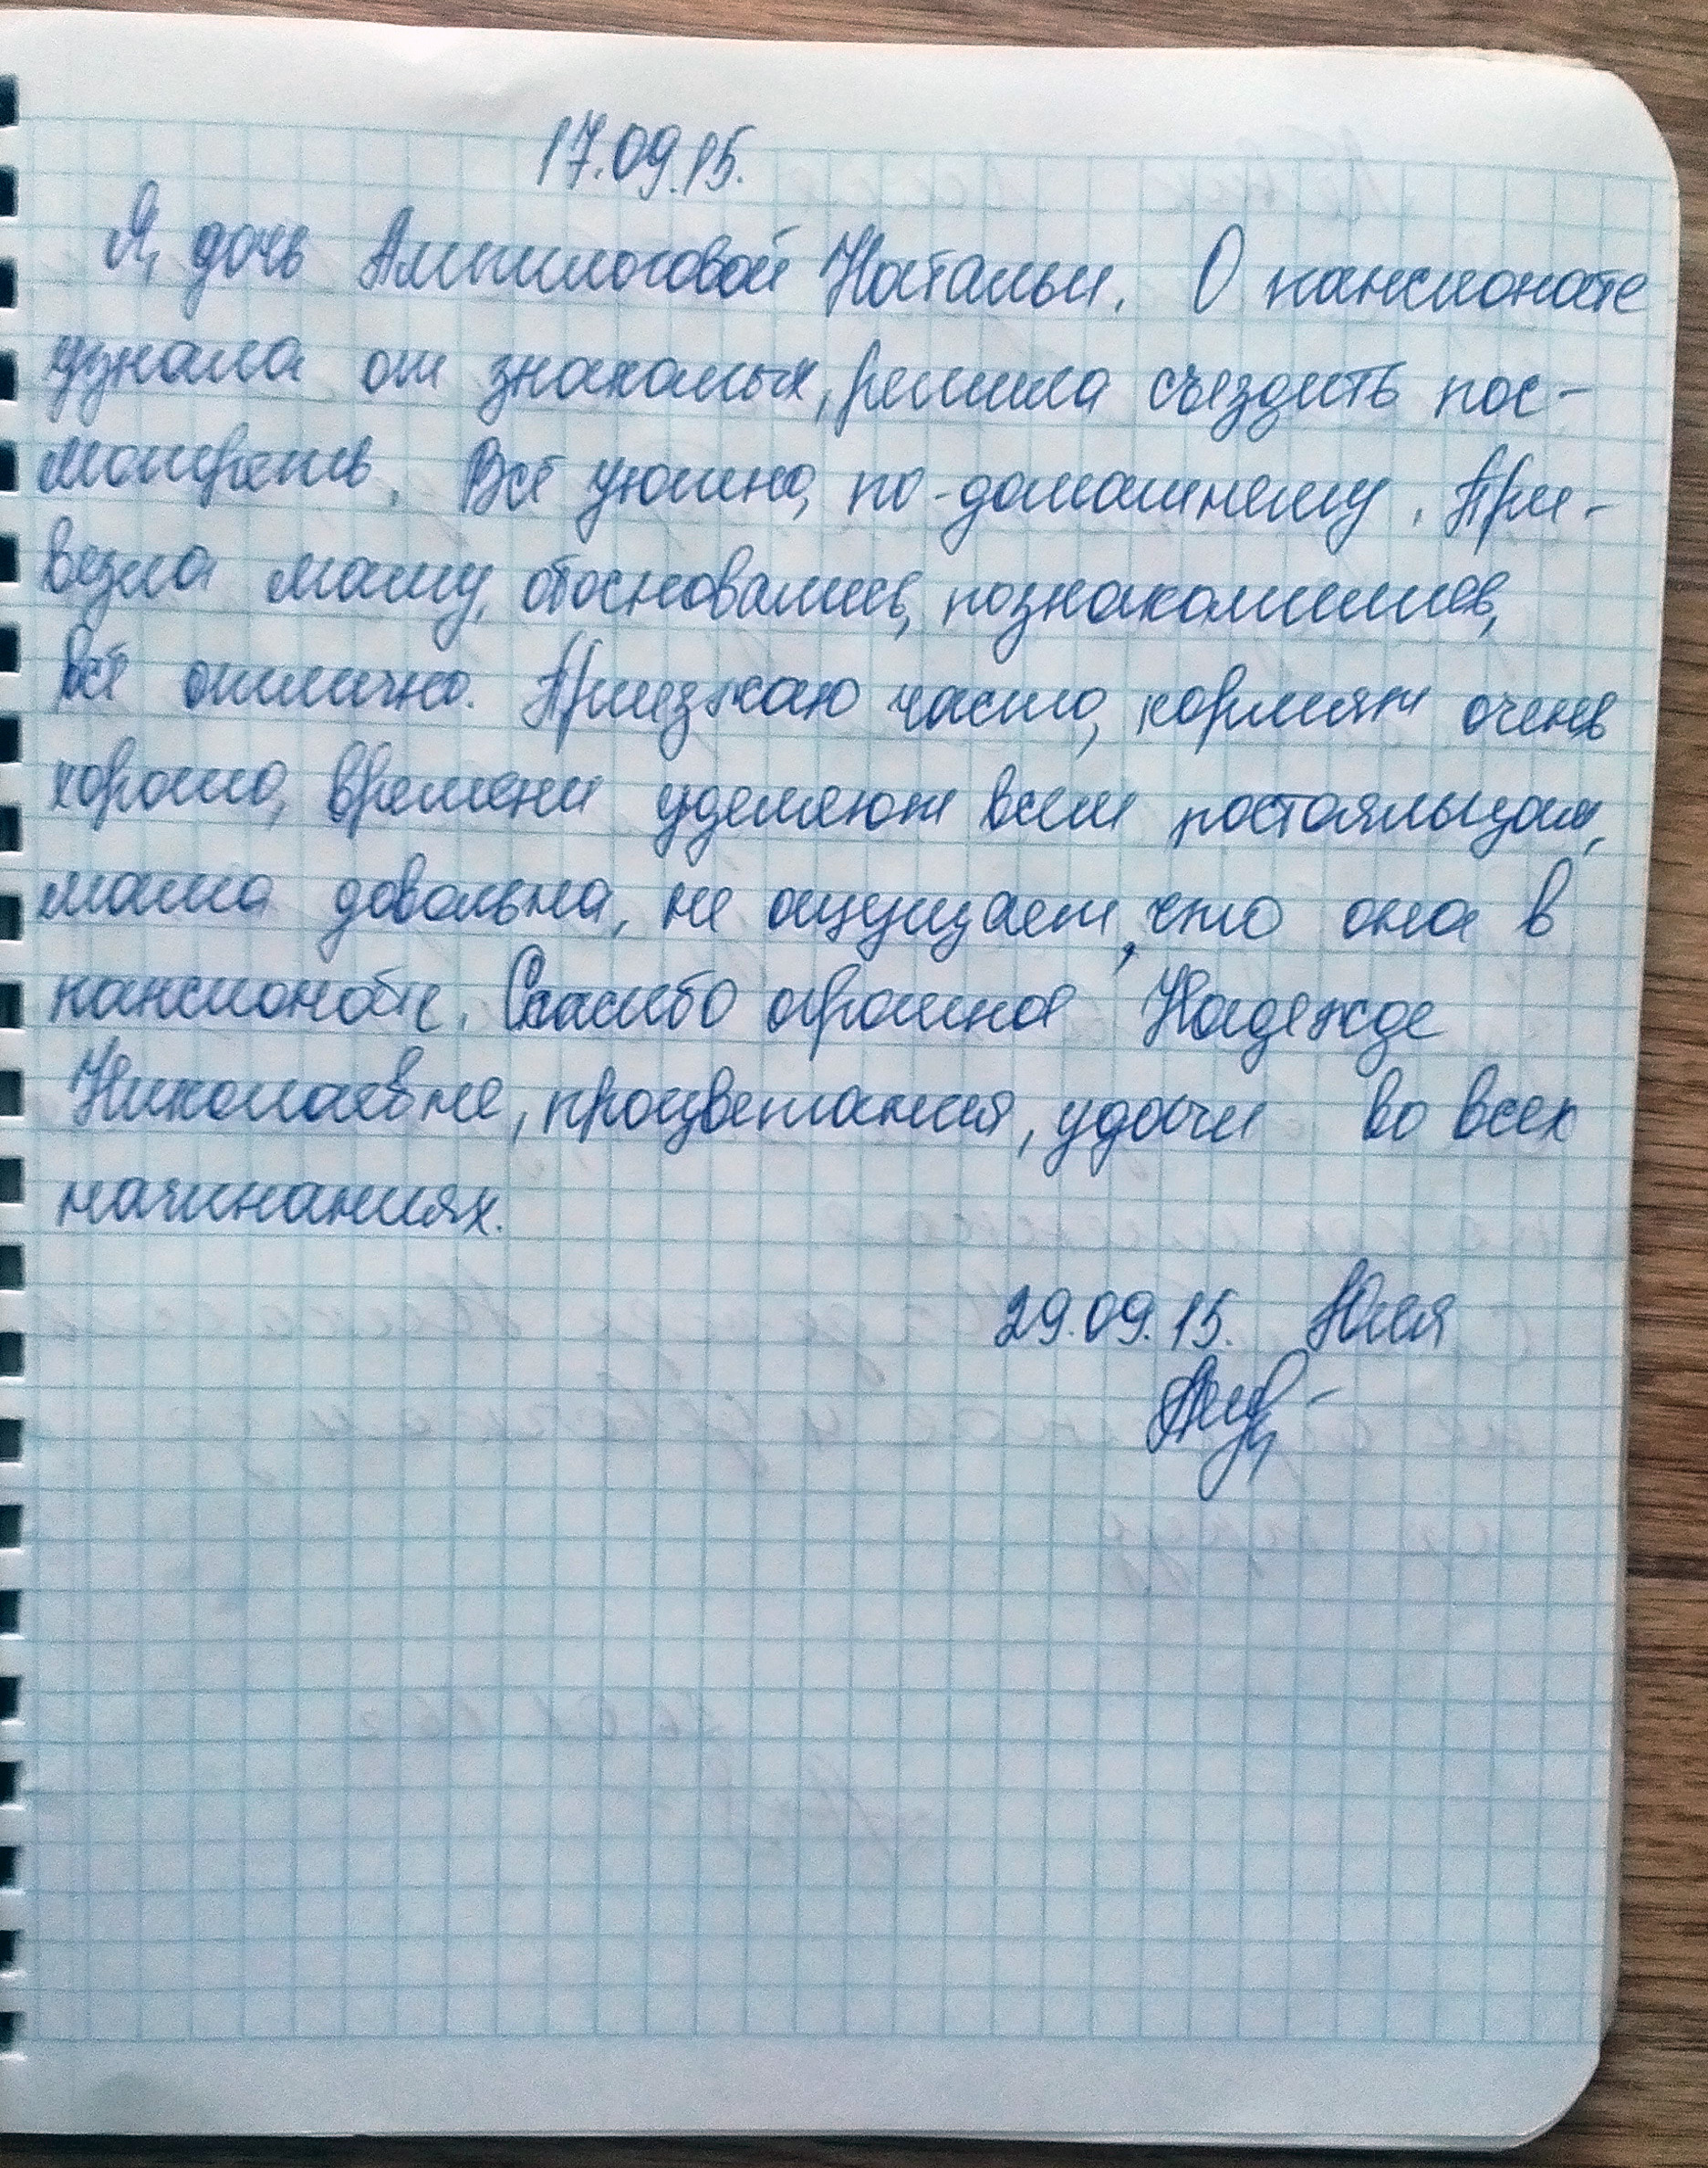 17.09.15.
Я, дочь Ампилоговой Натальи. О пансионате
узнала от знакомых, решила съездить пос-
мотреть. Всё уютно, по-домашнему. При-
везла маму, обосновались, познакомились,
всё отлично. Приезжаю часто, кормят очень
хорошо, времени уделяют всем постояльцам,
мама довольна, не ощущает, что она в
пансионате. Спасибо огромное Надежде
Николаевне, процветания, удачи во всех
начинаниях.
29.09.15. Юлия